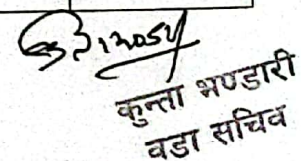 कुन्ता भण्डारी
वडा सचिव